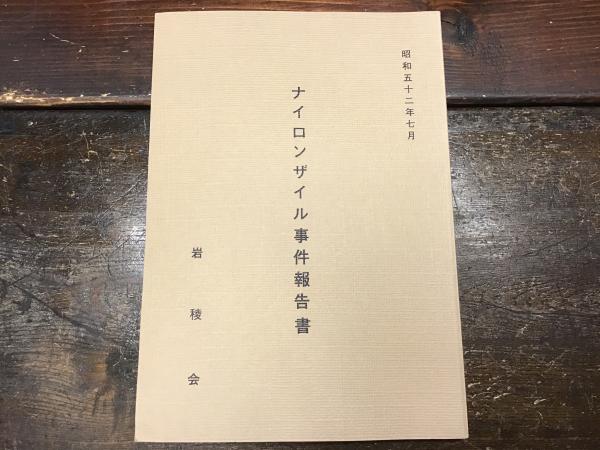 昭和五十二年七月
ナイロンザイル事件報告書
岩稜会